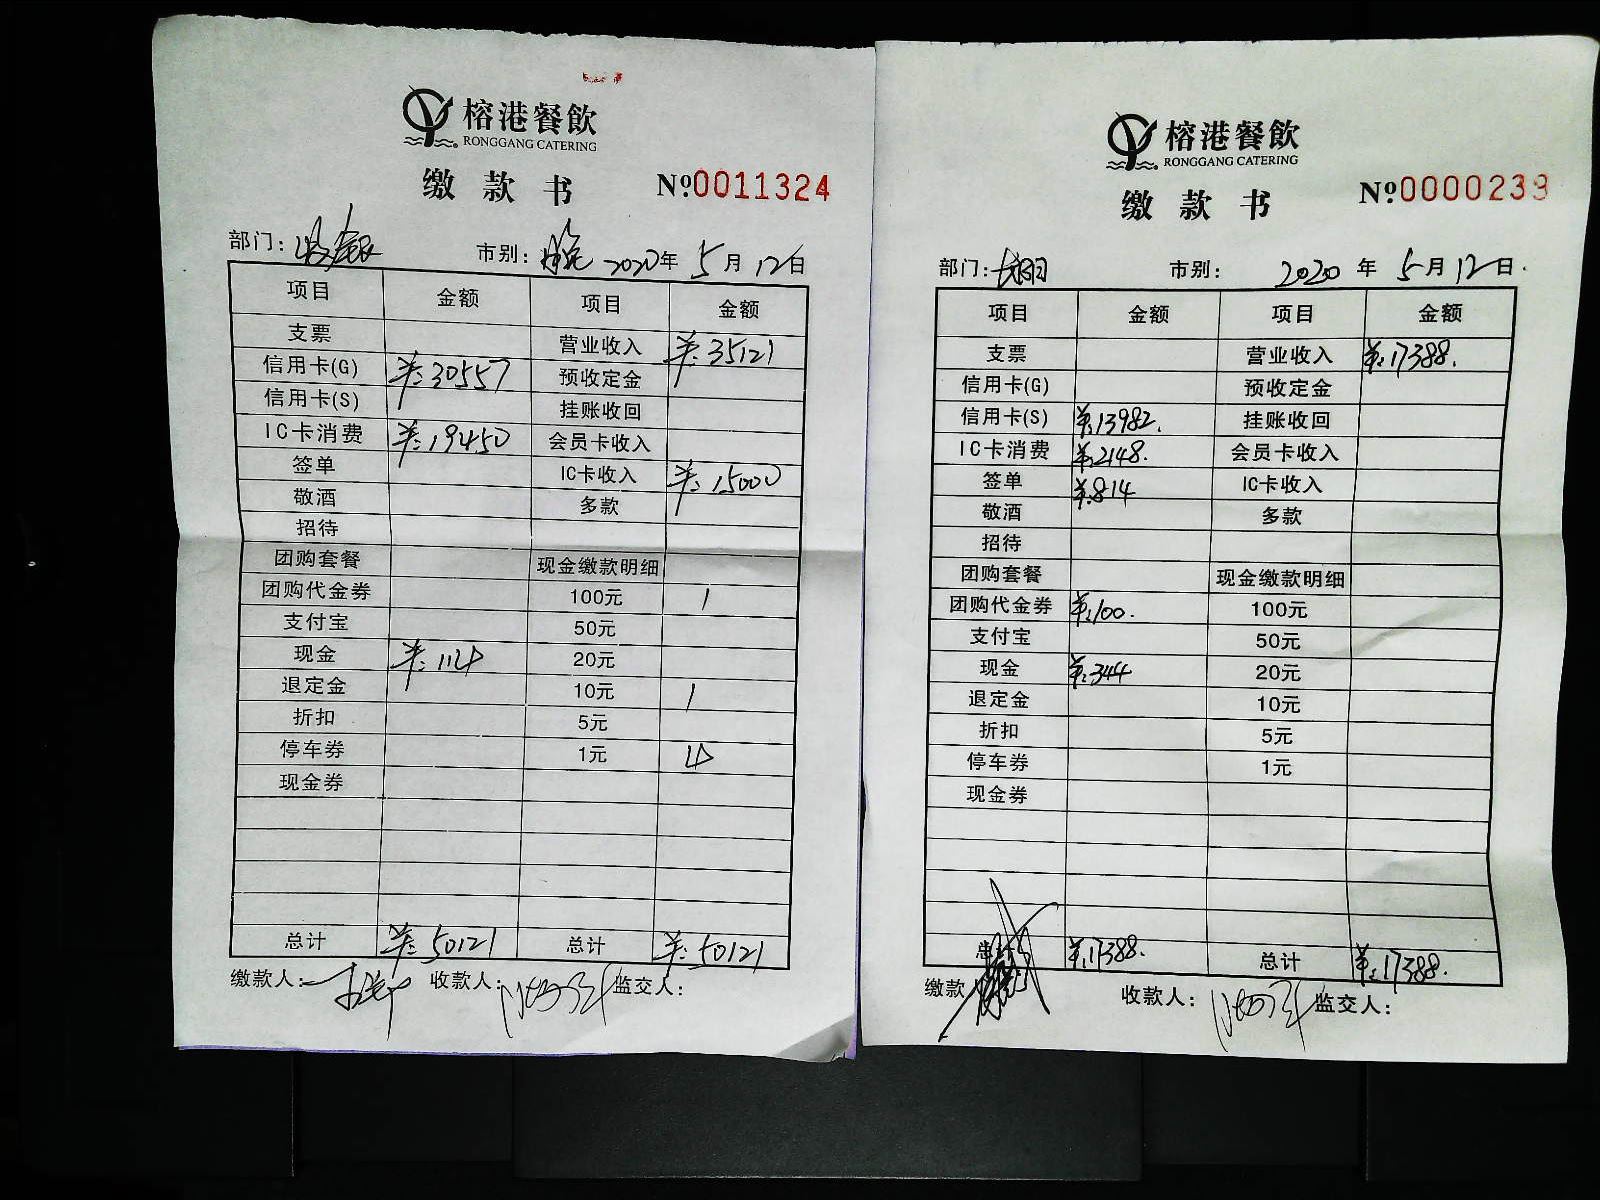 榕港餐飲
RONGGANG CATERING
缴款书 №0011324
部门：收银 市别：晚 2020年5月12日
项目 金额 项目 金额
支票 营业收入 ￥:35121
信用卡(G) ￥:30557 预收定金
信用卡(S) 挂账收回
IC卡消费 ￥:19450 会员卡收入
签单 IC卡收入 ￥:15000
敬酒 多款
招待
团购套餐 现金缴款明细
团购代金券 100元 1
支付宝 50元
现金 ￥:114 20元
退定金 10元 1
折扣 5元
停车券 1元 4
现金券
总计 ￥:50121 总计 ￥:50121
缴款人： 收款人： 监交人：
榕港餐飲
RONGGANG CATERING
缴款书 №0000239
部门： 市别： 2020年5月12日.
项目 金额 项目 金额
支票 营业收入 ￥:17388.
信用卡(G) 预收定金
信用卡(S) ￥:13982. 挂账收回
IC卡消费 ￥:2148. 会员卡收入
签单 ￥:814 IC卡收入
敬酒 多款
招待
团购套餐 现金缴款明细
团购代金券 ￥:100. 100元
支付宝 50元
现金 ￥:344 20元
退定金 10元
折扣 5元
停车券 1元
现金券
总计 ￥:17388. 总计 ￥:17388.
缴款 收款人： 监交人：